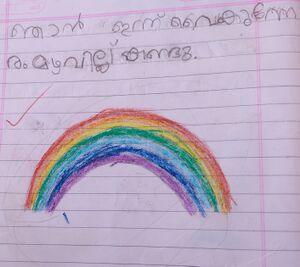 ഞാൻ ഇന്ന് വൈകുന്നേ
രം മഴവില്ല് കണ്ടു.